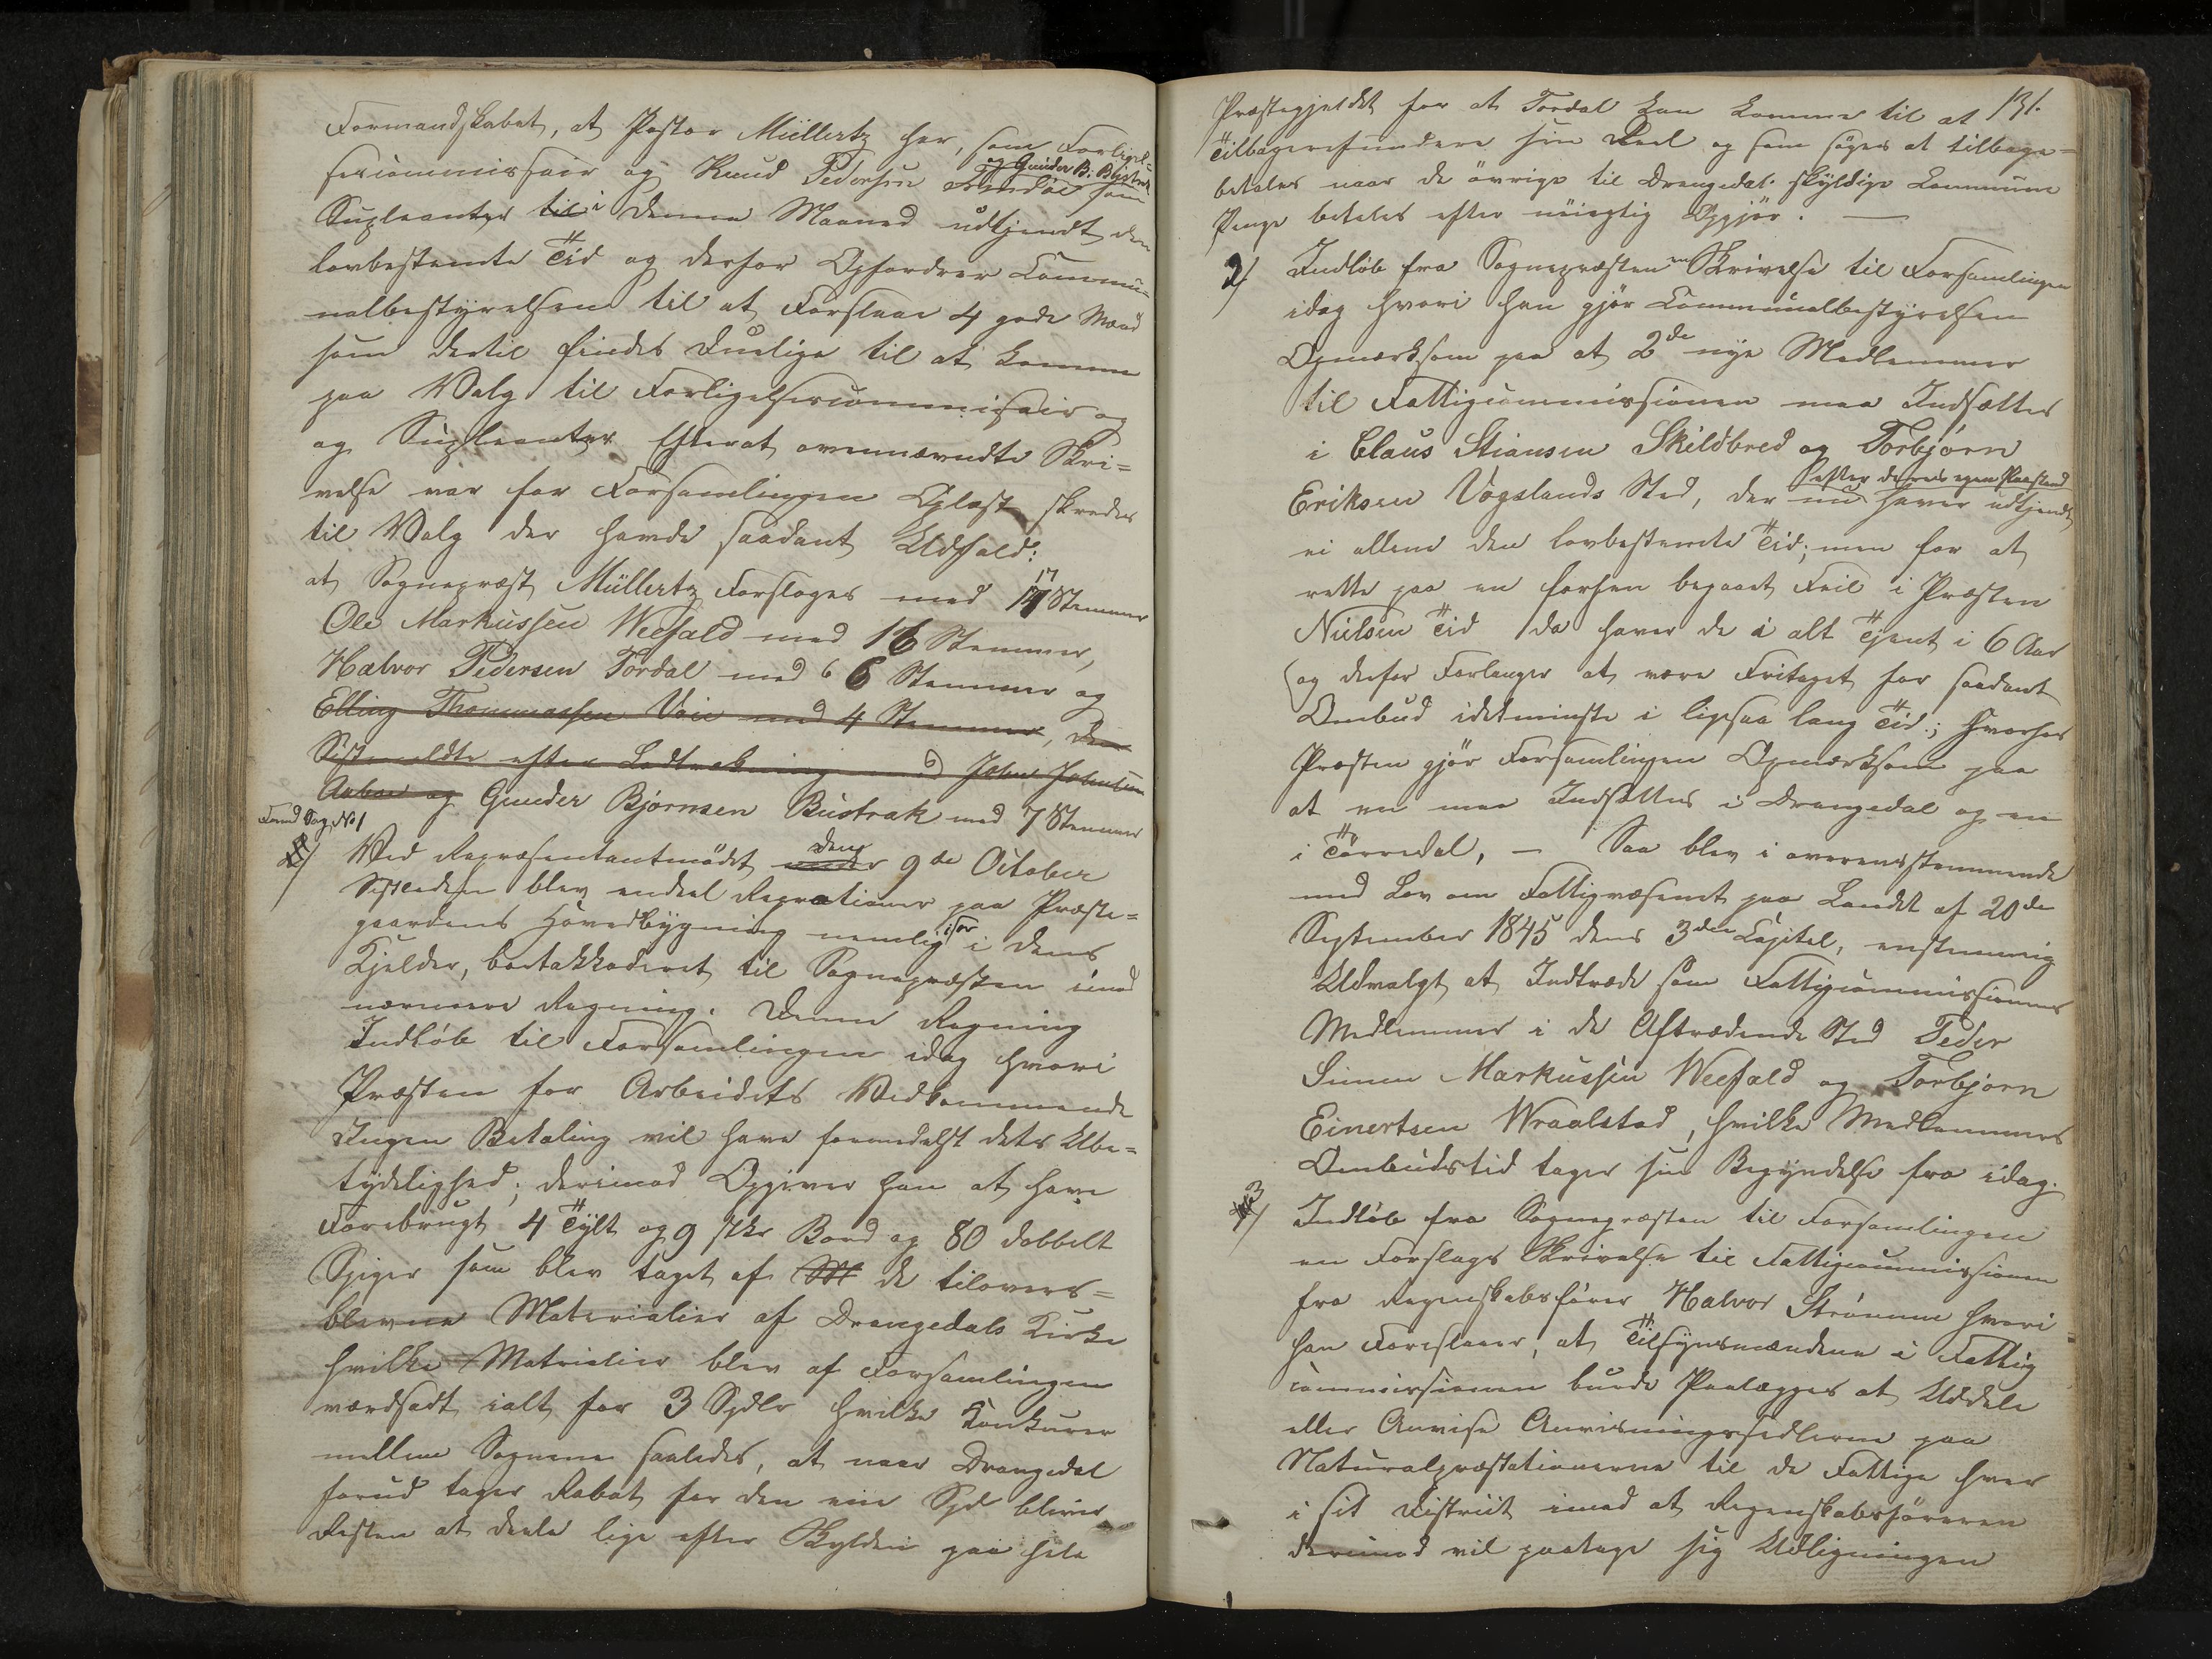 Formandskabet, at Pastor Müllertz her, som Forligel-
sescommissair og Knud Pedersen Tømdøe og Gunder B. Bustrak som
Supleanter til i denne Maaned udtjendt den
lovbestemte Tid og derfor Opfordrer Commu-
nalbestyrelsen til at Forslaae 4 gode Mænd
som dertil findes Duelige til at komme
paa Valg til Forligelsescommissair og
og Supleanter. Efterat ovennævndte Skri-
velse var for Forsamlingen Oplæst skredes
til Valg der havde saadant Udfald:
at Sognepræst Müllertz Forsloges med 17 Stemmer
Ole Markussen Weefald med 16 Stemmer,
Halvor Pedersen Tordal med 6 6 Stemmer og
Elling Thommassen Voie med 4 Stemmer, den
Sistmeldte efter Lodtrækning med John Johnsen
Aabøe og Gunder Bjørnsen Bustrak med 7 Stemmer
Fond Sag No 1
2/ Ved Repræsentantmødet under den 9de October
Sistleden blev endeel Reprationer paa Præste-
gaardens Hovedbygning nemlig især i dens
Kjelder, bortakkoderet til Sognepræsten imod
nærmere Regning. Denne Regning
Indløb til Forsamlingen idag hvori
Præsten for Arbeidets Vedkommende
Ingen Betaling vil have formedelst dets Ube-
tydelighed; derimod Opgiver han at have
Forebrugt 4 Tylt og 9 stkr Bord og 80 dobbelt
Spiger som blev taget af M de tilovers-
blevne Materialier af Drangedals Kirke
hvilke Matrialier blev af Forsamlingen
værdsadt ialt for 3 Spdlr hvilke Konkurer
mellem Sognene saaledes, at naar Drangedal
forud tager Rabat for den ene Spd bliver
Resten at deele lige efter Skylden paa hele
131.
Præstegjeldet for at Tordal kan komme til at
Tilbagerefundere sin Deel og som søges at tilbage-
betales naar de øvrige til Drangedal skyldige Commune
Penge betales efter nøiagtig Opgjør. —
2/ Indløb fra Sognepræsten en Skrivelse til Forsamlingen
idag hvori han gjør Communalbestyrelsen
Opmærksom paa at 2de nye Medlemmer
til Fattigcommissionen maa Indsættes
i Claus Stiansen Skildbred og Torbjørn
Eriksen Vogslands Sted, der nu efter deres egen Paastand haver udtjendt
ei allene den lovbestemte Tid; men for at
rette paa en forhen begaaet Feil i Præsten
Nielsen Tid da haver de i alt Tjent i 6 Aar
og derfor Forlanger at være Fritaget for saadant
Ombud idetminste i ligesaa lang Tid; hvorhos
Præsten gjør Forsamlingen Opmærksom paa
at en maa Indsættes i Drangedal og en
i Tørredal, — Saa blev i overensstemmende
med Lov om Fattigvæsenet paa Landet af 20de
September 1845 dens 3die Capitel, enstemmig
Udvalgt at Indtræde som Fattigcommissionens
Medlemmer i de Aftrædende Sted Peder
Simen Markussen Weefald og Torbjørn
Einertsen Wraalstad, hvilke Medlemmers
Ombudstid tager sin Begyndelse fra idag.
3/ Indløb fra Sognepræsten til Forsamlingen
en Forslags Skrivelse til Fattigcommissionen
fra Regnskabsfører Halvor Strømme hvori
han Foreslaaer, at Tilsynsmændene i Fattig
commissionen burde Paalægges at Uddele
eller Anvise Anvisningssedlerne paa
Naturalpræstationerne til de Fattige hver
i sit District imod at Regnskabsføreren
derimod vil paatage sig Udligningen